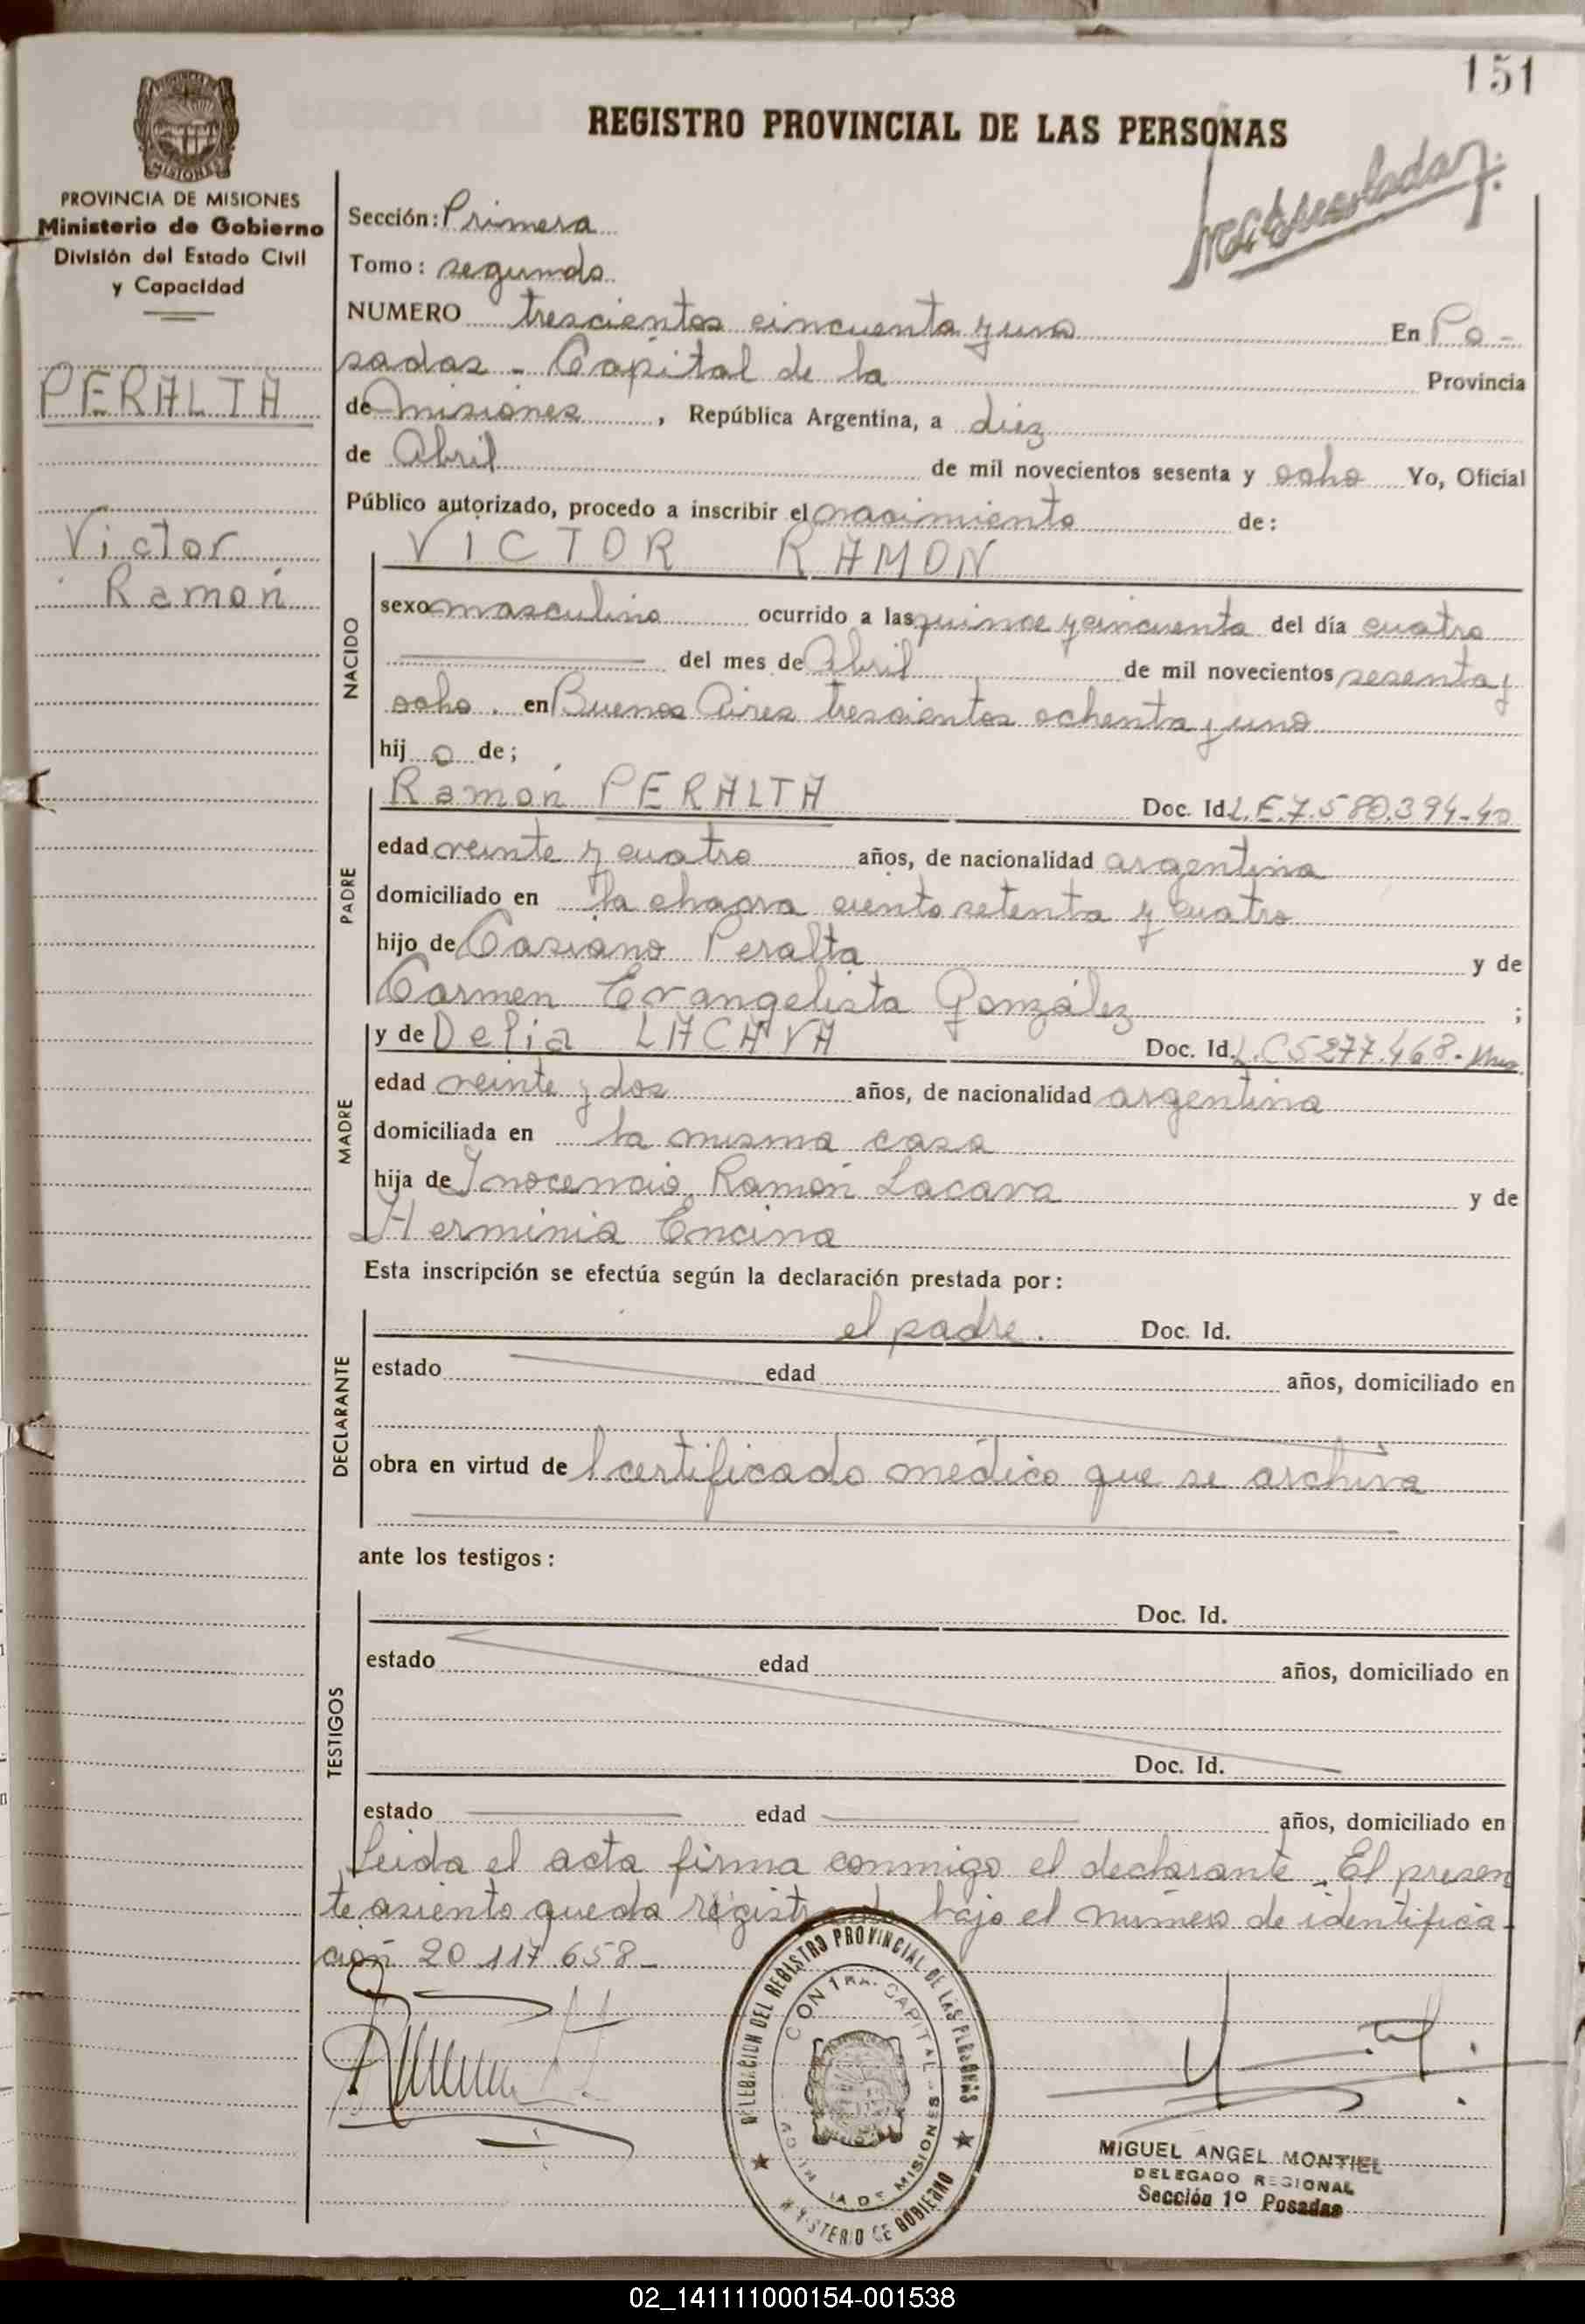 151
REGISTRO PROVINCIAL DE LAS PERSONAS
Matriculado
MISIONES
PROVINCIA DE MISIONES
Ministerio de Gobierno
División del Estado Civil
y Capacidad
PERALTA
Victor
Ramón
Sección: Primera
Tomo: segundo
NUMERO trescientos cincuenta y uno En Po-
sadas - Capital de la Provincia
de Misiones, República Argentina, a diez
de Abril de mil novecientos sesenta y ocho Yo, Oficial
Público autorizado, procedo a inscribir el nacimiento de:
VICTOR RAMON
NACIDO
sexo masculino ocurrido a las quince y cincuenta del día cuatro
del mes de Abril de mil novecientos sesenta y
ocho. en Buenos Aires trescientos ochenta y uno
hij o de;
Ramón PERALTA Doc. Id. L.E.7.580.394-40
PADRE
edad veinte y cuatro años, de nacionalidad argentina
domiciliado en la chacra ciento setenta y cuatro
hijo de Casiano Peralta y de
Carmen Evangelista González ;
y de Delia LACAVA Doc. Id. L.C 5277.468.
MADRE
edad veinte y dos años, de nacionalidad argentina
domiciliada en la misma casa
hija de Inocencio Ramón Lacava y de
Herminia Encina
Esta inscripción se efectúa según la declaración prestada por:
el padre. Doc. Id.
DECLARANTE
estado edad años, domiciliado en
obra en virtud de l certificado médico que se archiva
ante los testigos:
Doc. Id.
TESTIGOS
estado edad años, domiciliado en
Doc. Id.
estado edad años, domiciliado en
Leida el acta firma conmigo el declarante. El presen
te asiento queda registrado bajo el número de identifica-
ción 20.117.658-
DELEGACION DEL REGISTRO PROVINCIAL DE LAS PERSONAS
CAPITAL - MISIONES
MINISTERIO DE GOBIERNO
MIGUEL ANGEL MONTIEL
DELEGADO REGIONAL
Sección 1º Posadas
02_141111000154-001538